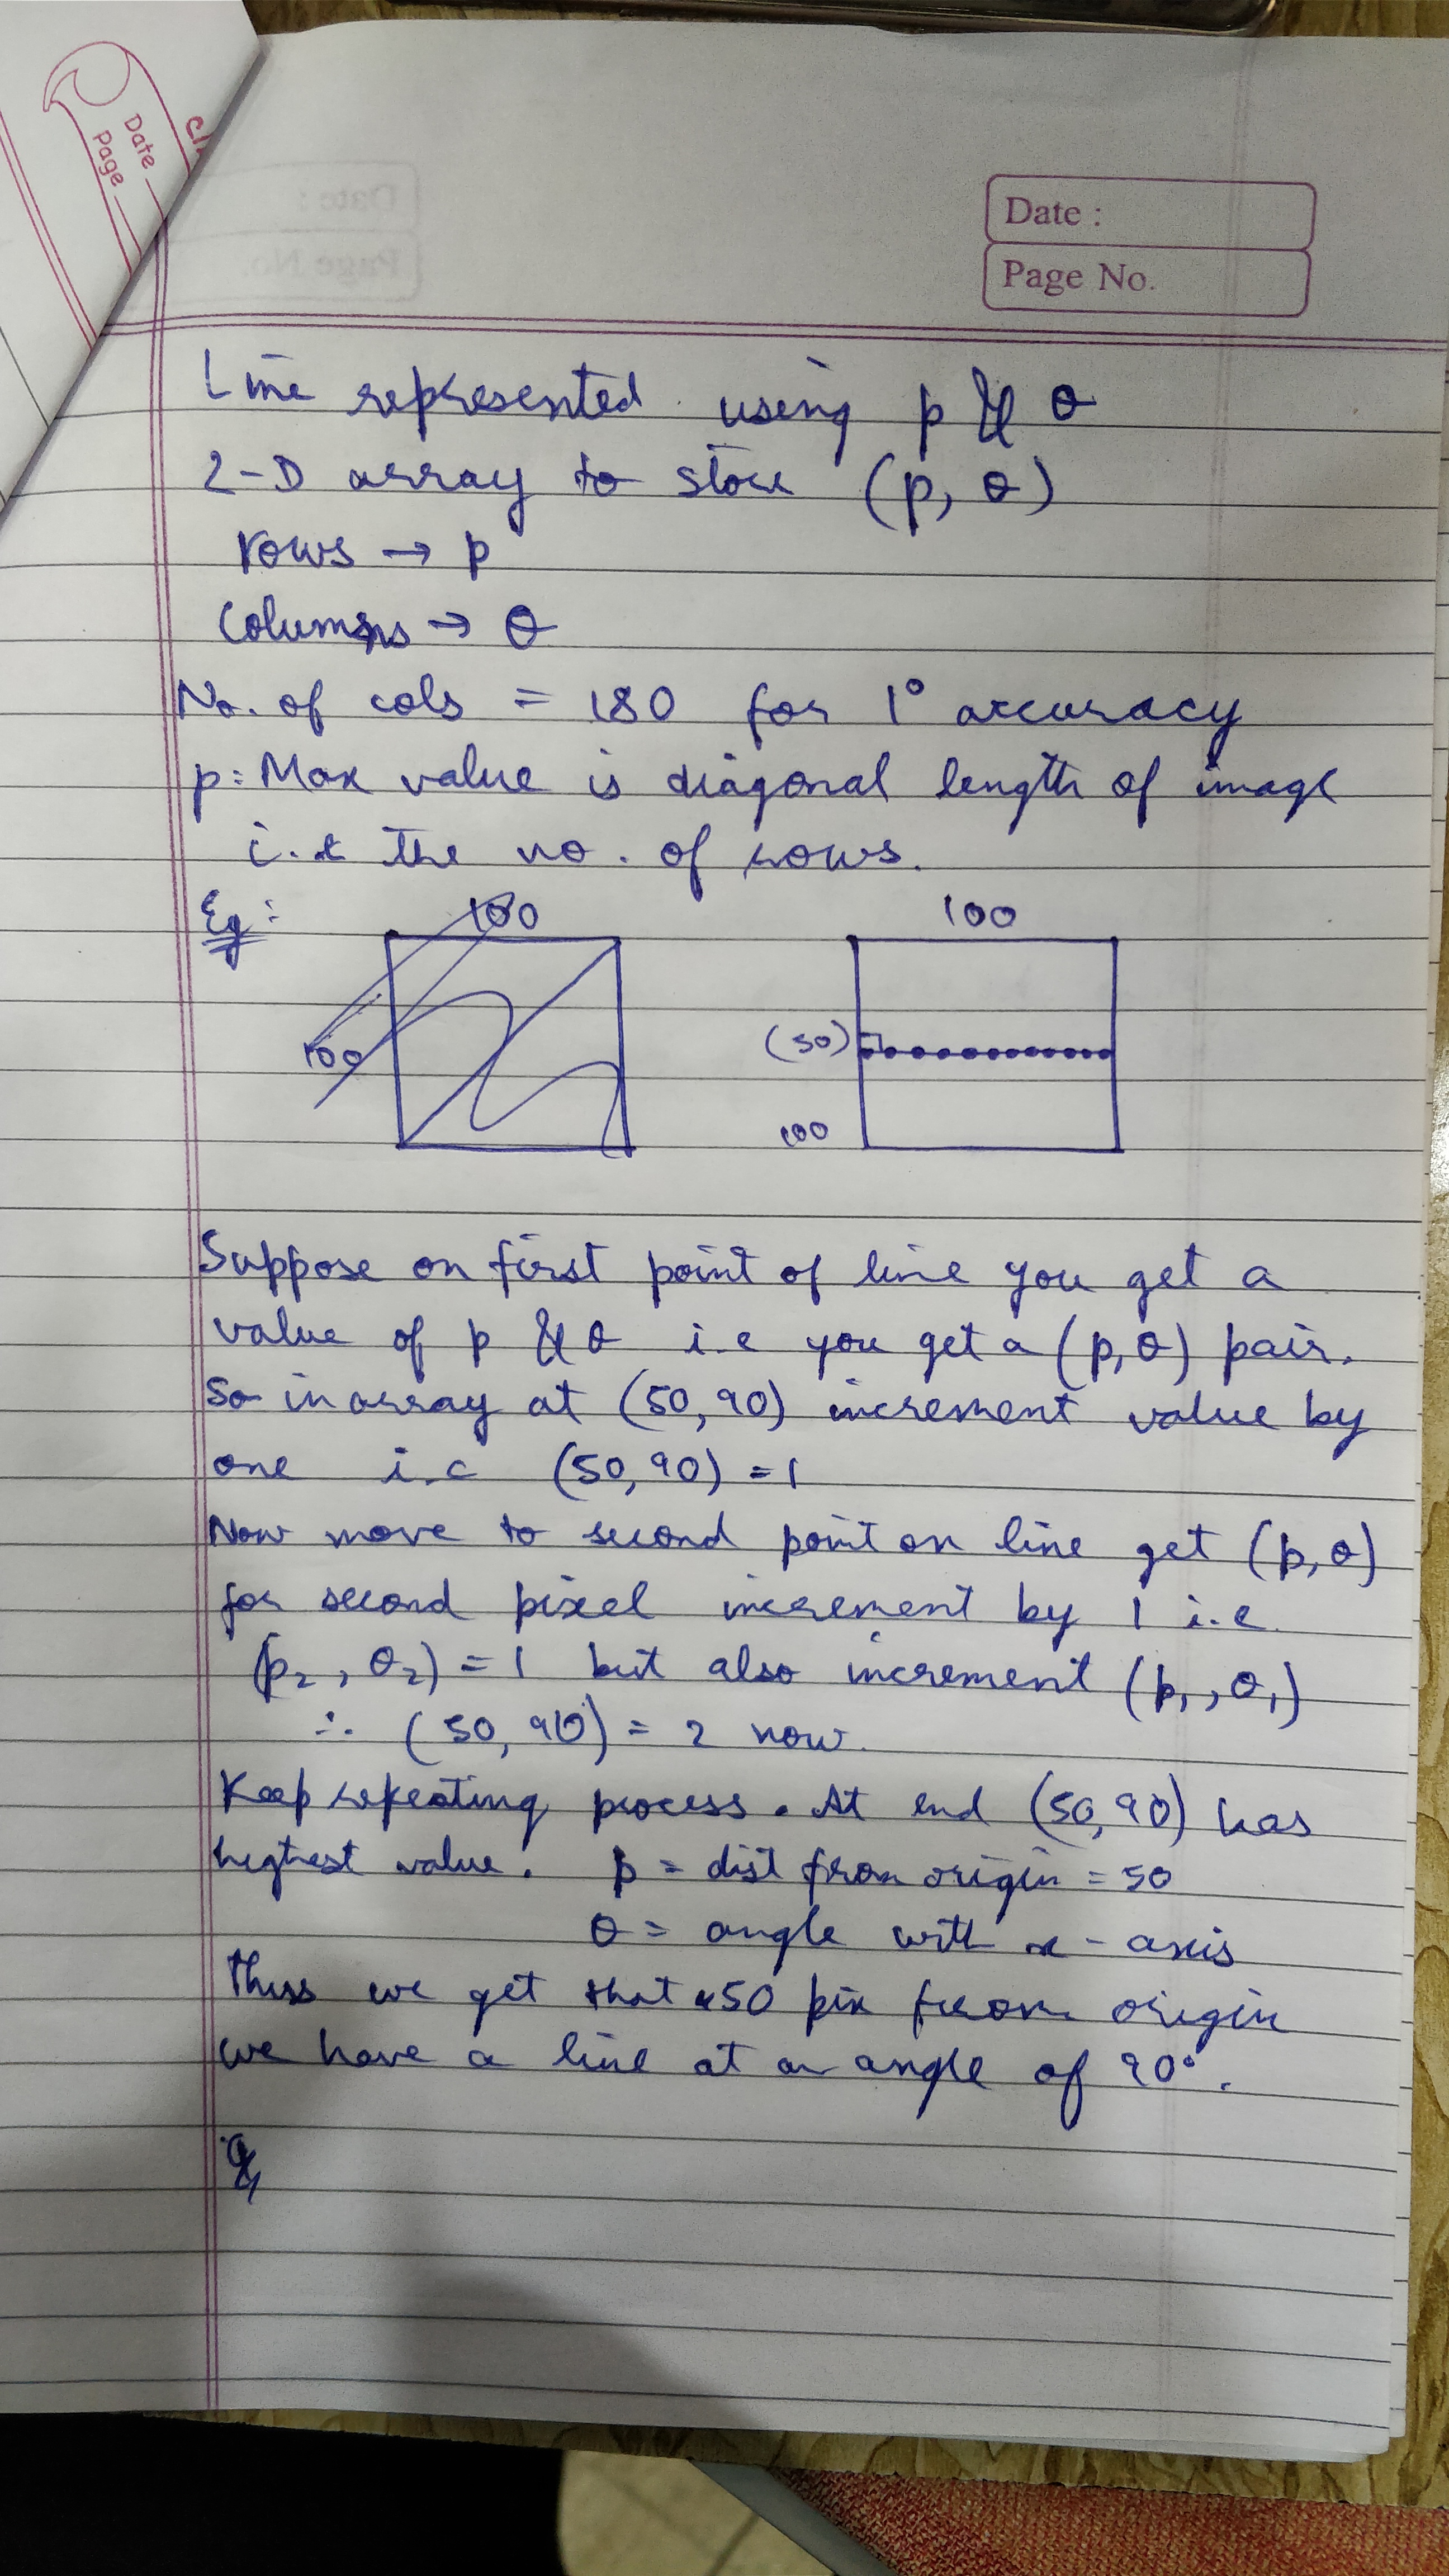 Date
Page
Date :
Page No.
Line represented using p & θ
2-D array to store (p, θ)
rows → p
Columns → θ
No. of cols = 180 for 1° accuracy
p: Max value is diagonal length of image
i.e the no. of rows.
Eg:
100
100
100
(50)
100
Suppose on first point of line you get a
value of p & θ i.e you get a (p, θ) pair.
So in array at (50, 90) increment value by
one i.e (50, 90) = 1
Now move to second point on line get (p, θ)
for second pixel increment by 1 i.e
(p₂, θ₂) = 1 but also increment (p₁, θ₁)
∴ (50, 90) = 2 now.
Keep repeating process. At end (50, 90) has
highest value. p = dist from origin = 50
θ = angle with x-axis
Thus we get that 50 pix from origin
we have a line at an angle of 90°.